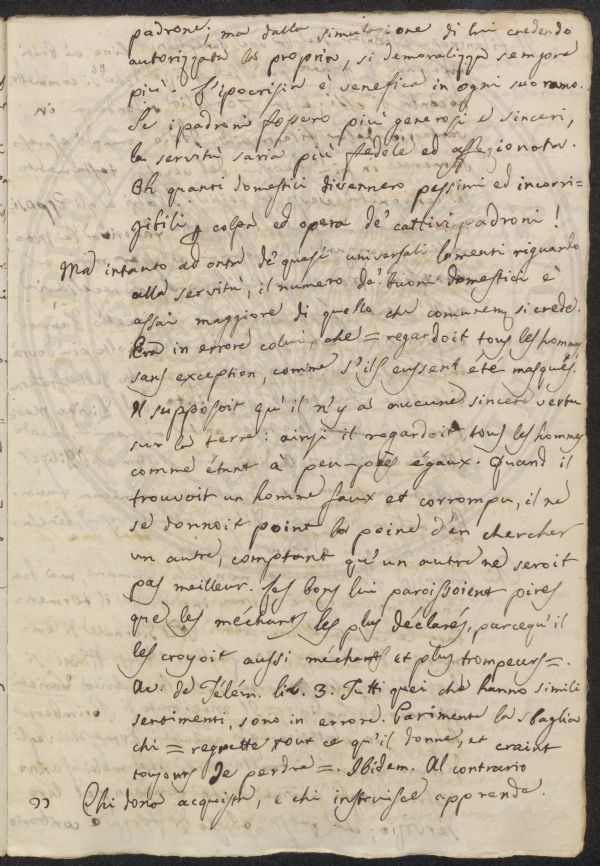 padrone; ma dalla simulazione di lui credendo
autorizzata la propria, si demoralizza sempre
più. L'ipocrisia è venefica in ogni suo ramo.
Se i padroni fossero più generosi e sinceri,
la servitù saria più fedele ed affezionata.
Oh quanti domestici divennero pessimi ed incorri-
gibili p colpa ed opera de' cattivi padroni!
Ma intanto ad onta de' quasi universali lamenti riguardo
alla servitù, il numero de' buoni domestici è
assai maggiore di quello che comunem. si crede.
Era in errore colui, che = regardoit tous les hommes
sans exception, comme s'ils eussent été masqués.
Il supposoit qu'il n'y a aucune sincere vertu
sur la terre: ainsi il regardoit tous les hommes
comme étant à peu-près égaux. Quand il
trouvoit un homme faux et corrompu, il ne
se donnoit point la peine d'en chercher
un autre, comptant qu'un autre ne seroit
pas meilleur. Les bons lui paroissoient pires
que les méchants les plus déclarés, parcequ'il
les croyoit aussi méchants et plus trompeurs =.
Av. de Télém. lib. 3. Tutti quei che hanno simili
sentimenti, sono in errore. Parimente la sbaglia
chi = regrette tout ce qu'il donne, et craint
toujours de perdre =. Ibidem. Al contrario
" Chi dona acquista, e chi instruisce apprende.